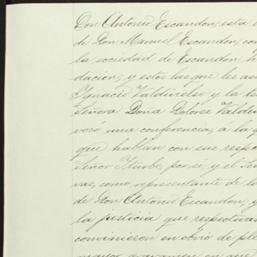 Don Antonio Escandon, esta
de Don Manuel Escandon, co
la sociedad de Escandon, h
dacion; y estos los que les as
Ignacio Valdivielso y la te
Señora Doña Dolores Valdi
vocó una conferencia, a la
que hablan con sus resp
Señor Iturbe, por sí, y el
vas, como representante de
de Don Antonio Escandon, y
la justicia que respectiva
convinieron en obvio de ple